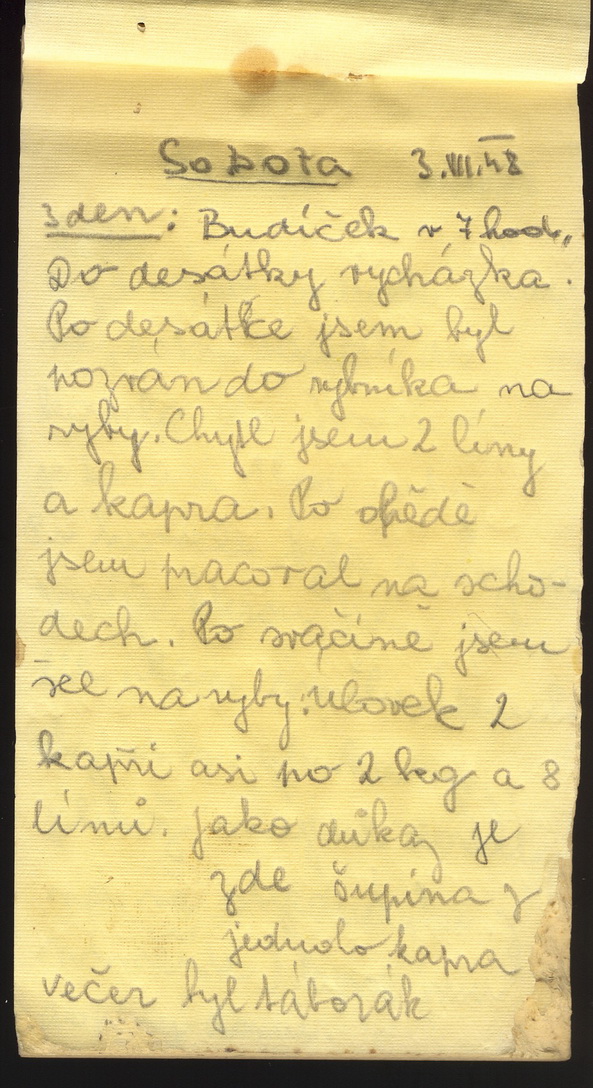 Sobota 3.VII.48
3 den: Budíček v 7 hod.,
Do desátky vycházka.
Po desátke jsem byl
pozván do rybníka na
ryby. Chytl jsem 2 líny
a kapra. Po obědě
jsem pracoval na scho-
dech. Po svačině jsem
šel na ryby: Úlovek 2
kapři asi po 2 kg a 8
línů. Jako důkaz je
zde šupina z
jednoho kapra
večer byl táborák